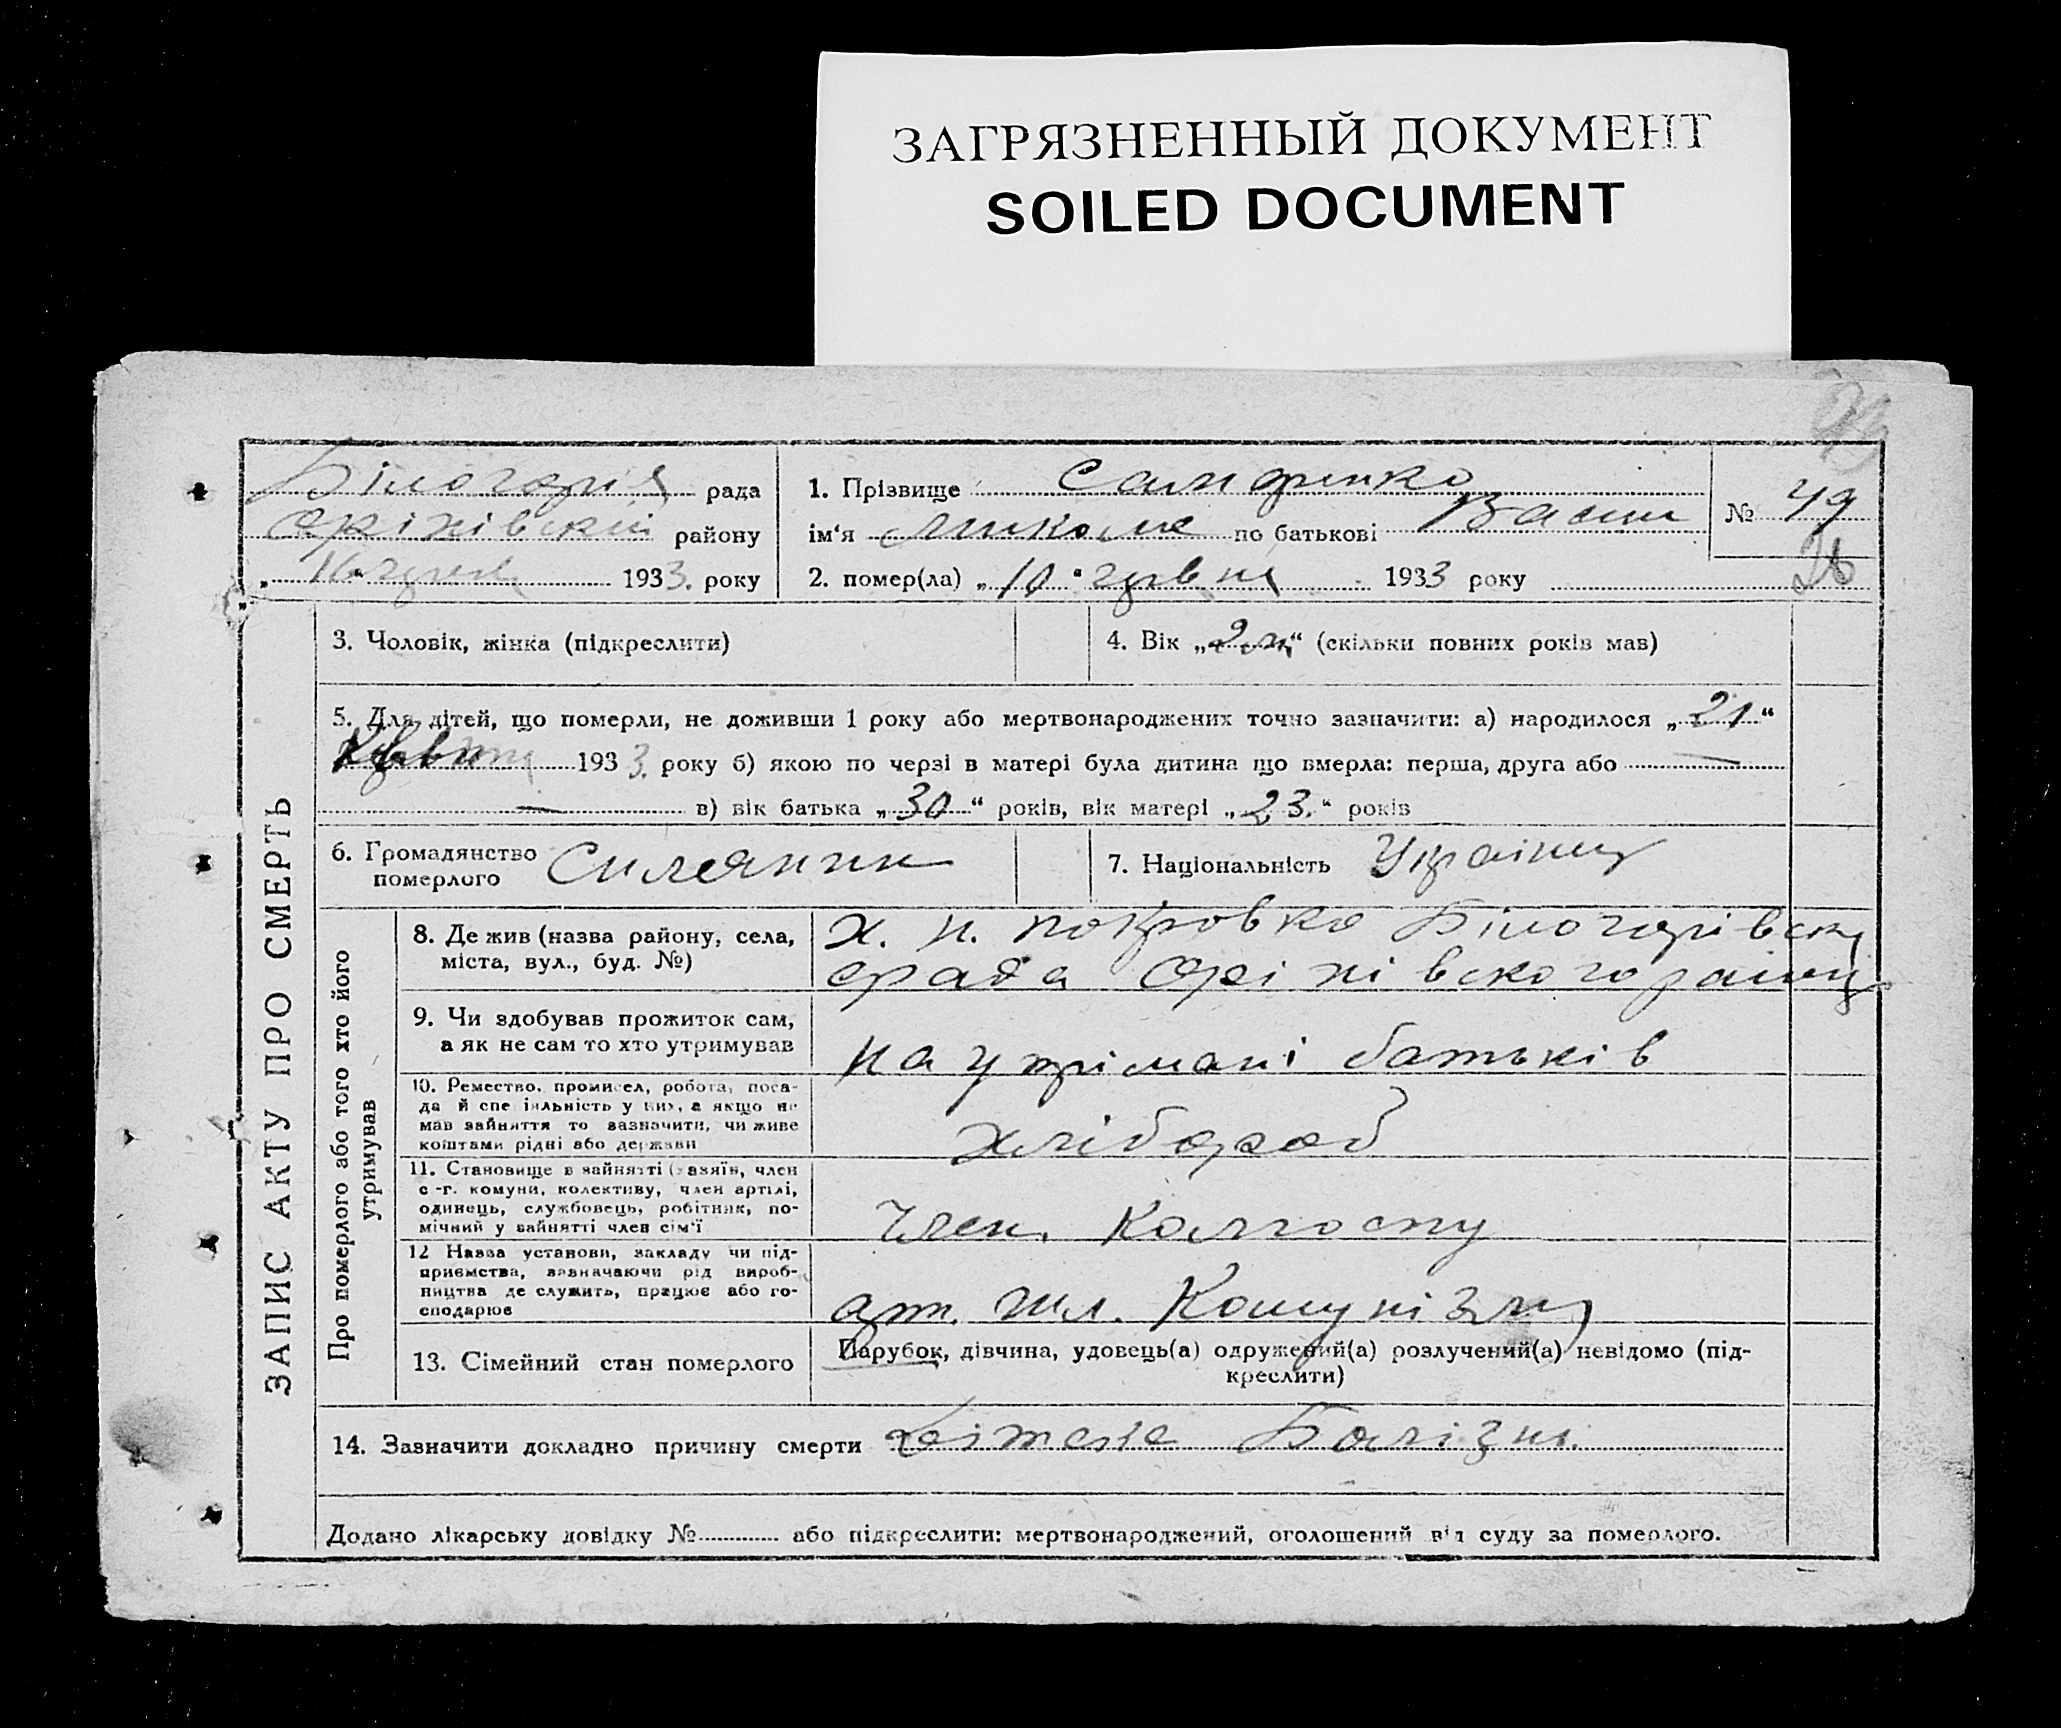 ЗАГРЯЗНЕННЫЙ ДОКУМЕНТ
SOILED DOCUMENT
рада
району
„16“ 1933. року
1. Прізвище
ім‘я Микола по батькові Васил
2. помер(ла) „10“ червня 1933 року
№ 49
26
ЗАПИС АКТУ ПРО СМЕРТЬ
3. Чоловік, жінка (підкреслити)
4. Вік „2 м“ (скільки повних років мав)
5. Для дітей, що померли, не доживши 1 року або мертвонароджених точно зазначити: а) народилося „21“
1933. року б) якою по черзі в матері була дитина що вмерла: перша, друга або —
— в) вік батька „30“ років, вік матері „23.“ років
6. Громадянство
померлого
Силянин
7. Національність
Українц
Про померлого або того хто його
утримував
8. Де жив (назва району, села,
міста, вул., буд. №)
х. Н. Покровка Білогорівск
рада Оріхівского району
9. Чи здобував прожиток сам,
а як не сам то хто утримував
На утрімані батьків
10. Ремество, промисел, робота, поса-
да й спеціяльність у них, а якщо не
мав зайняття то зазначити, чи живе
коштами рідні або держави
хлібороб
11. Становище в зайнятті (хазяїн, член
с.-г. комуни, колективу, член артілі,
одинець, службовець, робітник, по-
мічний у зайнятті член сім'ї
Член. Колгоспу
12 Назва установи, закладу чи під-
приємства, зазначаючи рід вироб-
ництва де служить, працює або го-
сподарює
арт. Шл. Комунізму
13. Сімейний стан померлого
Парубок, дівчина, удовець(а) одружений(а) розлучений(а) невідомо (під-
креслити)
14. Зазначити докладно причину смерти Дітяча Болізн.
Додано лікарську довідку № або підкреслити: мертвонароджений, оголошений від суду за померлого.